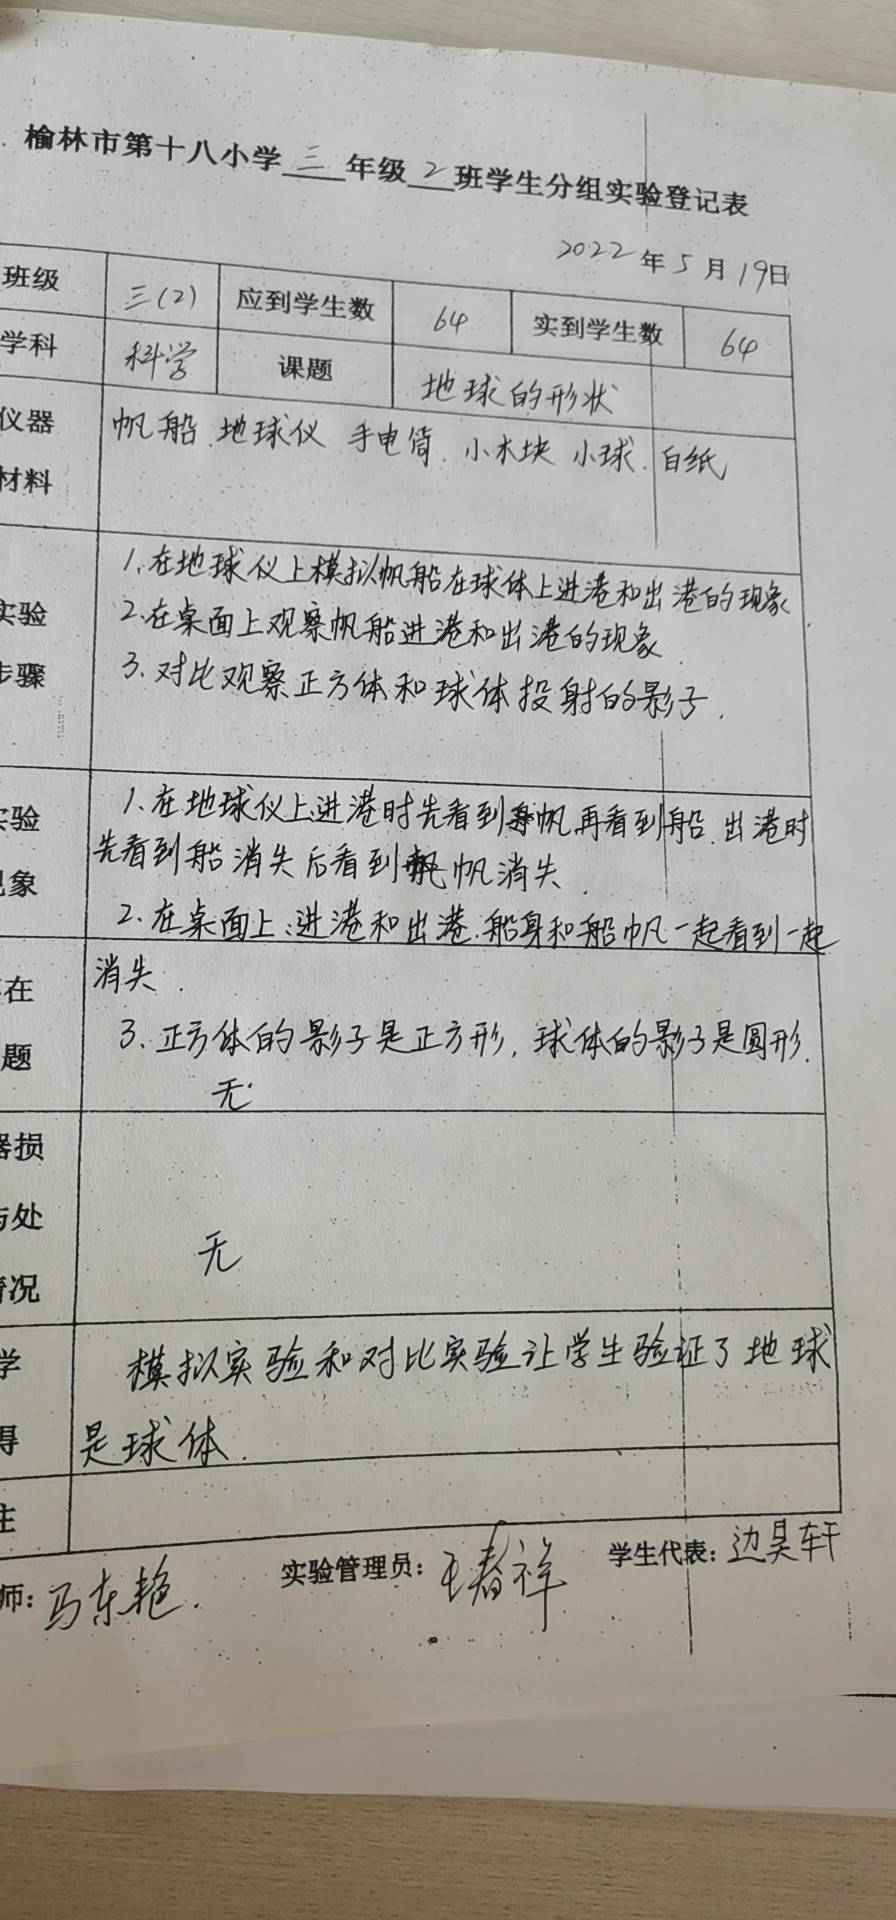 榆林市第十八小学 三 年级 2 班学生分组实验登记表
2022 年 5 月 19日
班级 三(2) 应到学生数 64 实到学生数 64
学科 科学 课题 地球的形状
仪器 帆船.地球仪 手电筒.小木块 小球.白纸
材料
1.在地球仪上模拟帆船在球体上进港和出港的现象
实验 2.在桌面上观察帆船进港和出港的现象.
步骤 3.对比观察正方体和球体投射的影子.
实验 1.在地球仪上进港时先看到帆再看到船.出港时
现象 先看到船消失后看到帆消失.
2.在桌面上:进港和出港.船身和船帆一起看到一起
在 消失.
题 3.正方体的影子是正方形,球体的影子是圆形.
无
器损
与处 无
情况
学 模拟实验和对比实验让学生验证了地球
得 是球体.
注
师:马东艳. 实验管理员:王春祥 学生代表:边昊轩